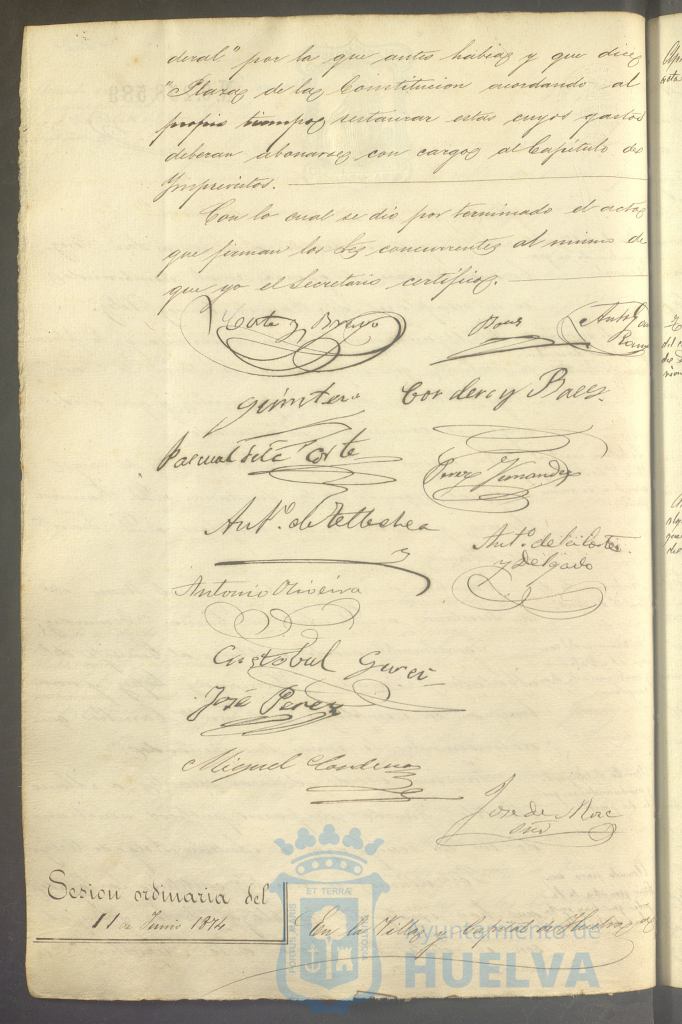 deral" por la que antes había y que dice
"Plaza de la Constitucion acordando al
propio tiempo restaurar estas cuyos gastos
deberan abonarse con cargo al Capitulo de
Imprevistos.
Con lo cual se dio por terminado el acto
que firman los Sres concurrentes al mismo de
que yo el Secretario certifico.
Corte y Bravo
Antº
Quintero Cordero y Baez
Pascual de la Corte
Perez Fernandez
Antº. de Tellechea
Antº. de la Corte
y Delgado
Antonio Oliveira
Cristobal Garci
José Perez
Miguel Cardenas
Jose de
Sesion ordinaria del
11 de Junio 1874
En la Villa y Capital de Huelva
ET TERRÆ
Ayuntamiento de
HUELVA